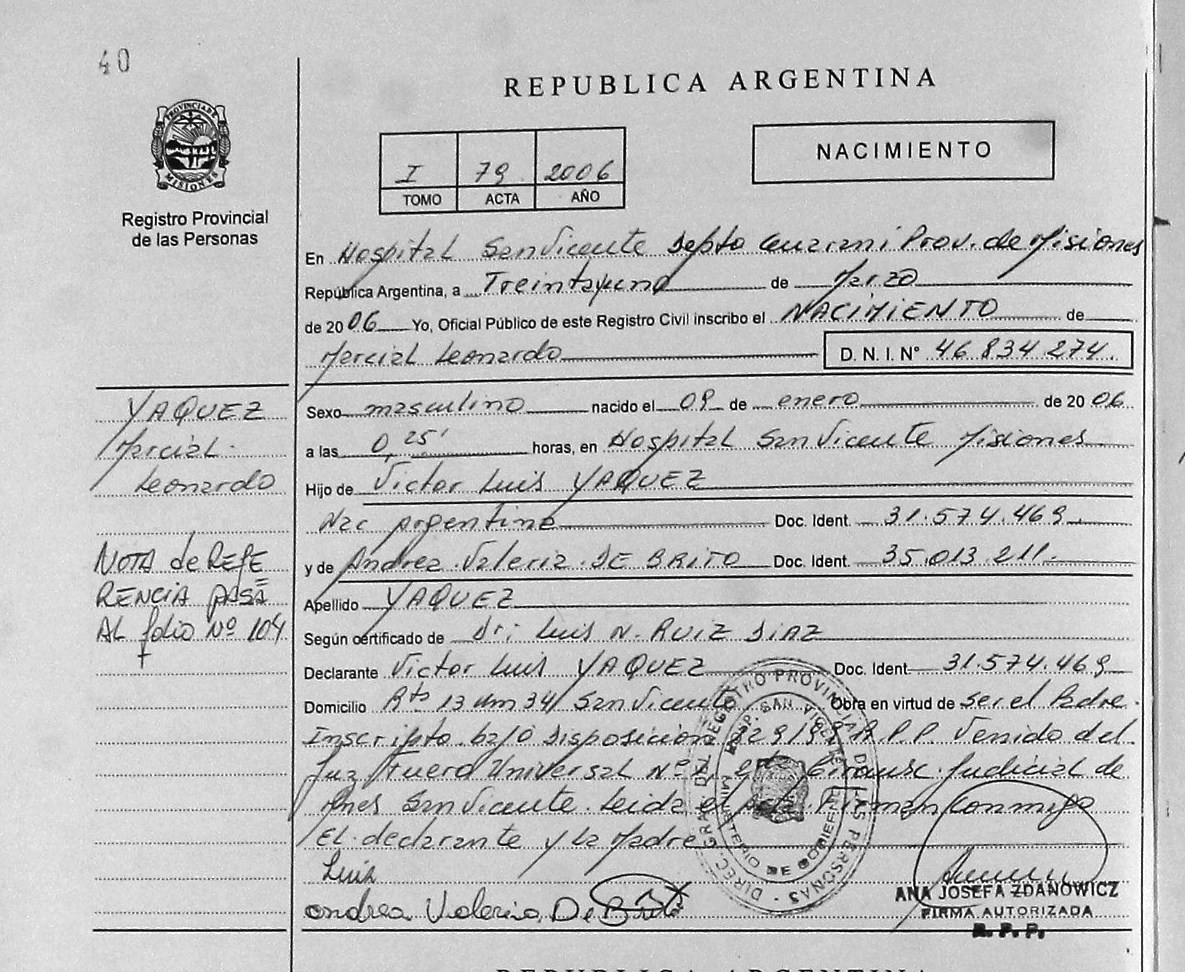 40
REPUBLICA ARGENTINA
PROVINCIA DE MISIONES
Registro Provincial
de las Personas
I 79 2006
TOMO ACTA AÑO
NACIMIENTO
En Hospital San Vicente Depto Guarani Prov. de Misiones
República Argentina, a Treintayuno de Marzo
de 2006 Yo, Oficial Público de este Registro Civil inscribo el NACIMIENTO de
Marcial Leonardo D. N. I. N° 46 834 274.
YAQUEZ
Marcial
Leonardo
Sexo masculino nacido el 09 de enero de 2006
a las 0,25' horas, en Hospital San Vicente Misiones
Hijo de Victor Luis YAQUEZ
Nac Argentina Doc. Ident. 31.574.469
y de Andrea Valeria DE BRITO Doc. Ident. 35.013.211
NOTA de REFE
RENCIA PASA
AL folio Nº 104
Apellido YAQUEZ
Según certificado de Dr: Luis N. RUIZ DIAZ
Declarante Victor Luis YAQUEZ Doc. Ident. 31.574.469
Domicilio Rta 13 Km 341 San Vicente Obra en virtud de ser el Padre.
Inscripto bajo Disposicion R.P.P. Venido del
Juz fuero Universal Nº Circunsc. Judicial de
San Vicente. Leida el Acta Firman Conmigo
El declarante y la Madre
Luis
Andrea Valeria De Brito
DIREC. GRAL. DEL REGISTRO PROVINCIAL DE LAS PERSONAS
HOSP. SAN VICENTE
MINISTERIO DE GOBIERNO
ANA JOSEFA ZDANOWICZ
FIRMA AUTORIZADA
R. P. P.
REPUBLICA ARGENTINA